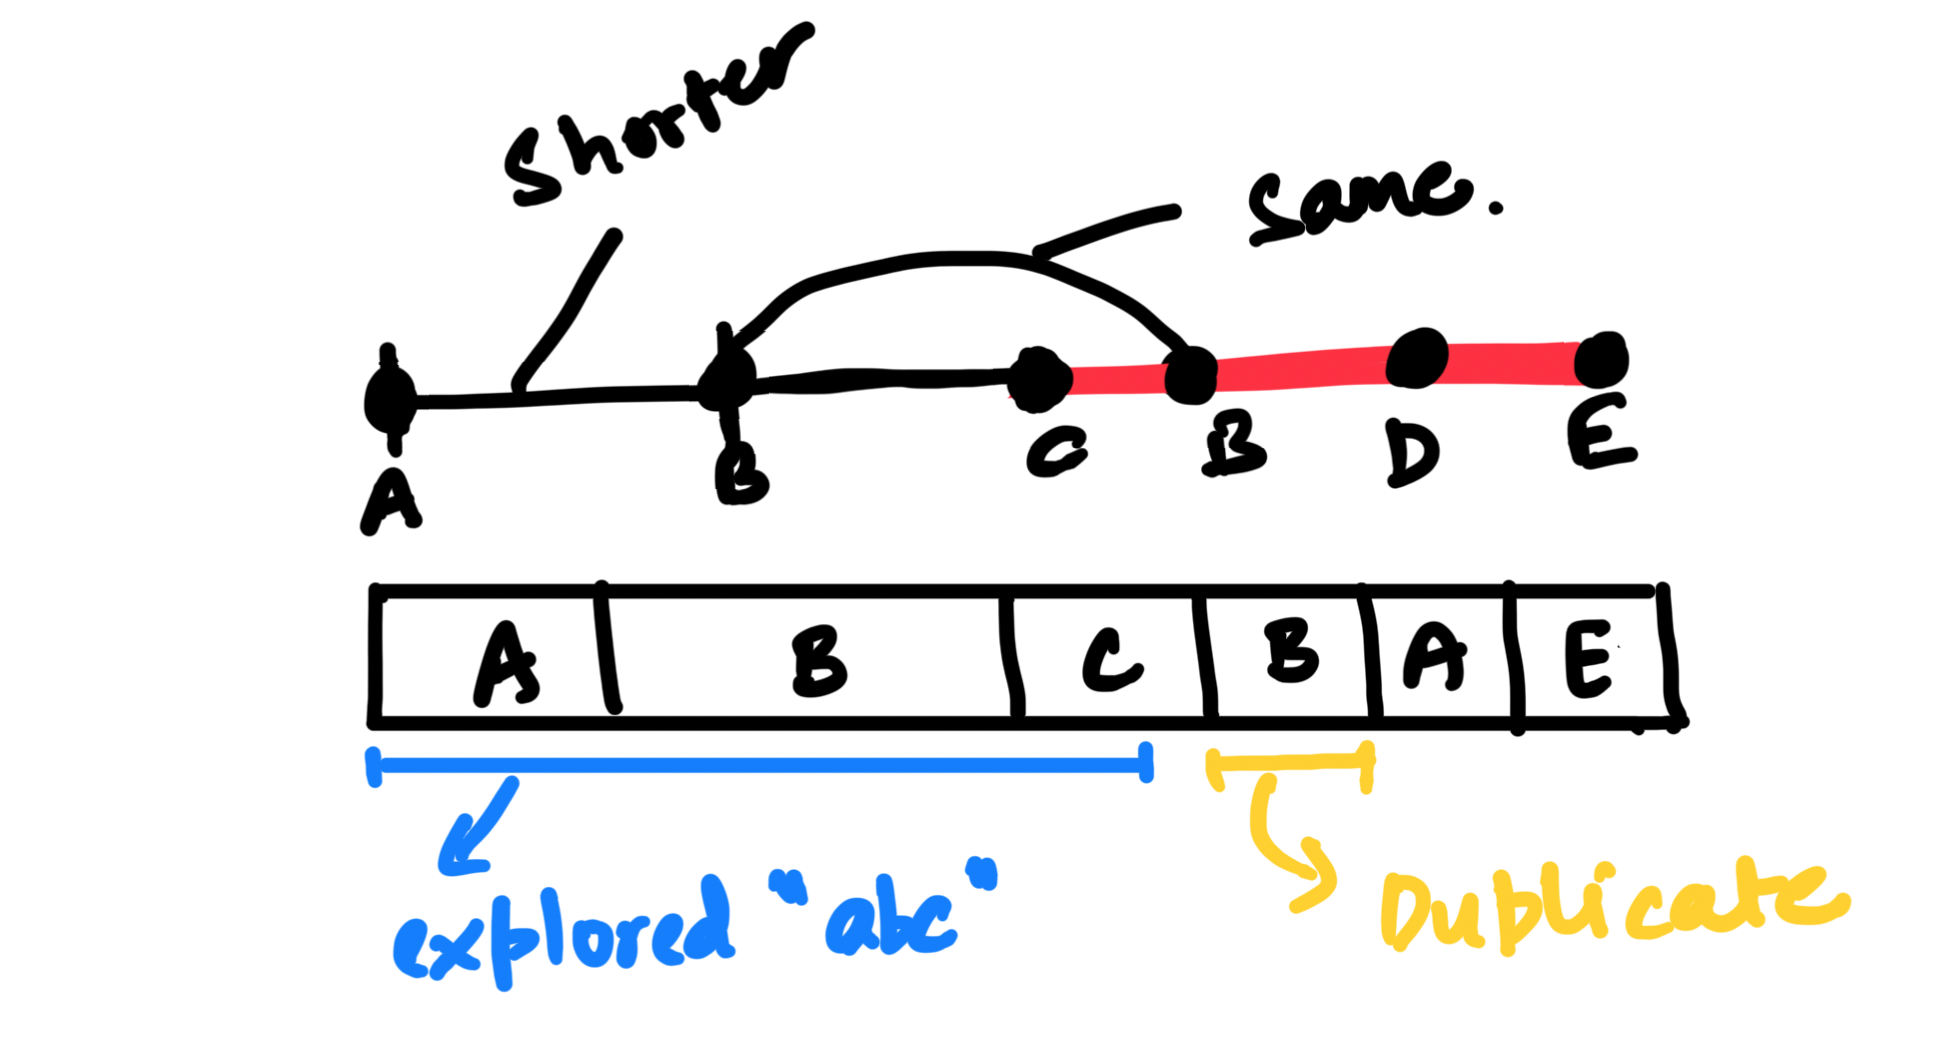 Shorter
Same.
A B C B D E
A B C B A E
explored "abc"
Duplicate